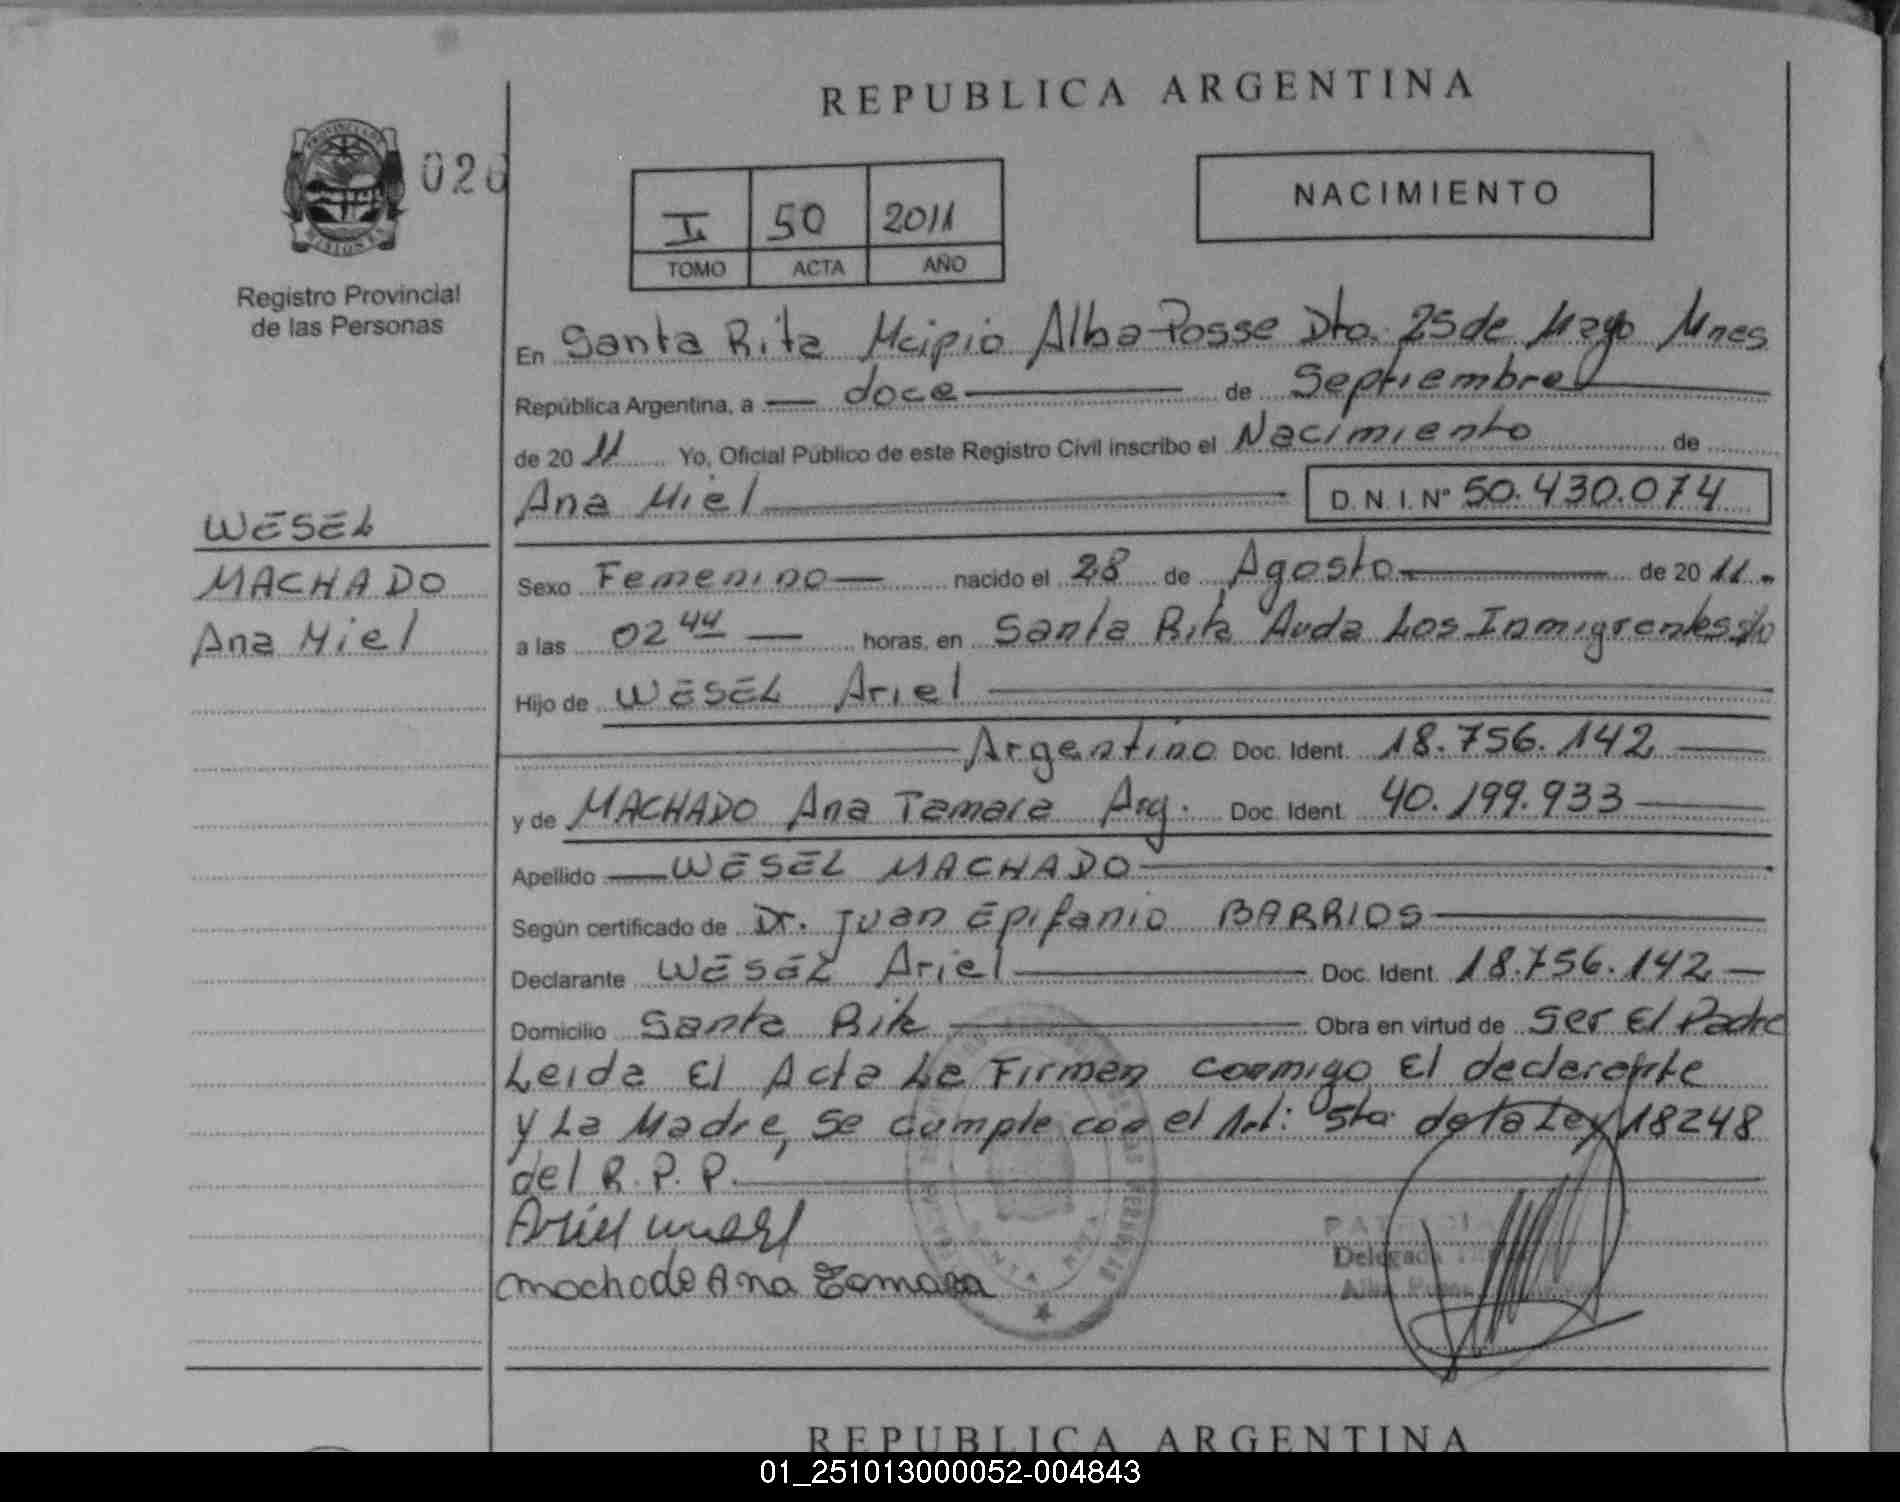 REPUBLICA ARGENTINA
PROVINCIA DE
MISIONES
020
Registro Provincial
de las Personas
I 50 2011
TOMO ACTA AÑO
NACIMIENTO
En Santa Rita Mcipio Alba Posse Dto. 25 de Mayo Mnes
República Argentina, a doce de Septiembre
de 2011 Yo, Oficial Público de este Registro Civil inscribo el Nacimiento de
Ana Miel D.N.I. Nº 50.430.074
WESEL
MACHADO
Ana Miel
Sexo Femenino nacido el 28 de Agosto de 2011.
a las 02 44 horas, en Santa Rita Avda Los Inmigrantes s/o
Hijo de WESEL Ariel
Argentino Doc. Ident. 18.756.142
y de MACHADO Ana Tamara Arg. Doc. Ident. 40.199.933
Apellido WESEL MACHADO
Según certificado de Dr. Juan Epifanio BARRIOS
Declarante WESEL Ariel Doc. Ident. 18.756.142
Domicilio Santa Rita Obra en virtud de ser El Padre
Leida El Acta La Firman conmigo El declarante
y La Madre, se cumple con el Art: 5to de la Ley 18248
del R.P.P.
Ariel wesel
machado Ana Tamara
Delegada
REPUBLICA ARGENTINA
01_251013000052-004843